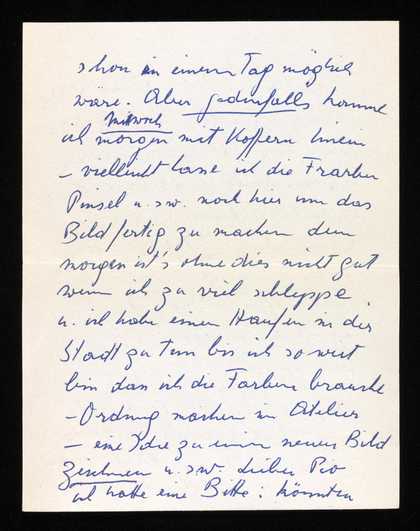 schon in einem Tag möglich
wäre. Aber jedenfalls komme
Mittwoch
ich morgen mit Koffern hinein
– vielleicht lasse ich die Frarben
Pinsel u. sw. noch hier um das
Bild fertig zu machen denn
morgen ist's ohne dies nicht gut
wenn ich zu viel schleppe
u. ich habe einen Haufen in der
Stadt zu tun bis ich so weit
bin dass ich die Farben brauche
– Ordnung machen im Atelier
– eine Idee zu einem neuen Bild
zeichnen u. sw. Lieber Pio
ich hätte eine Bitte: könnten